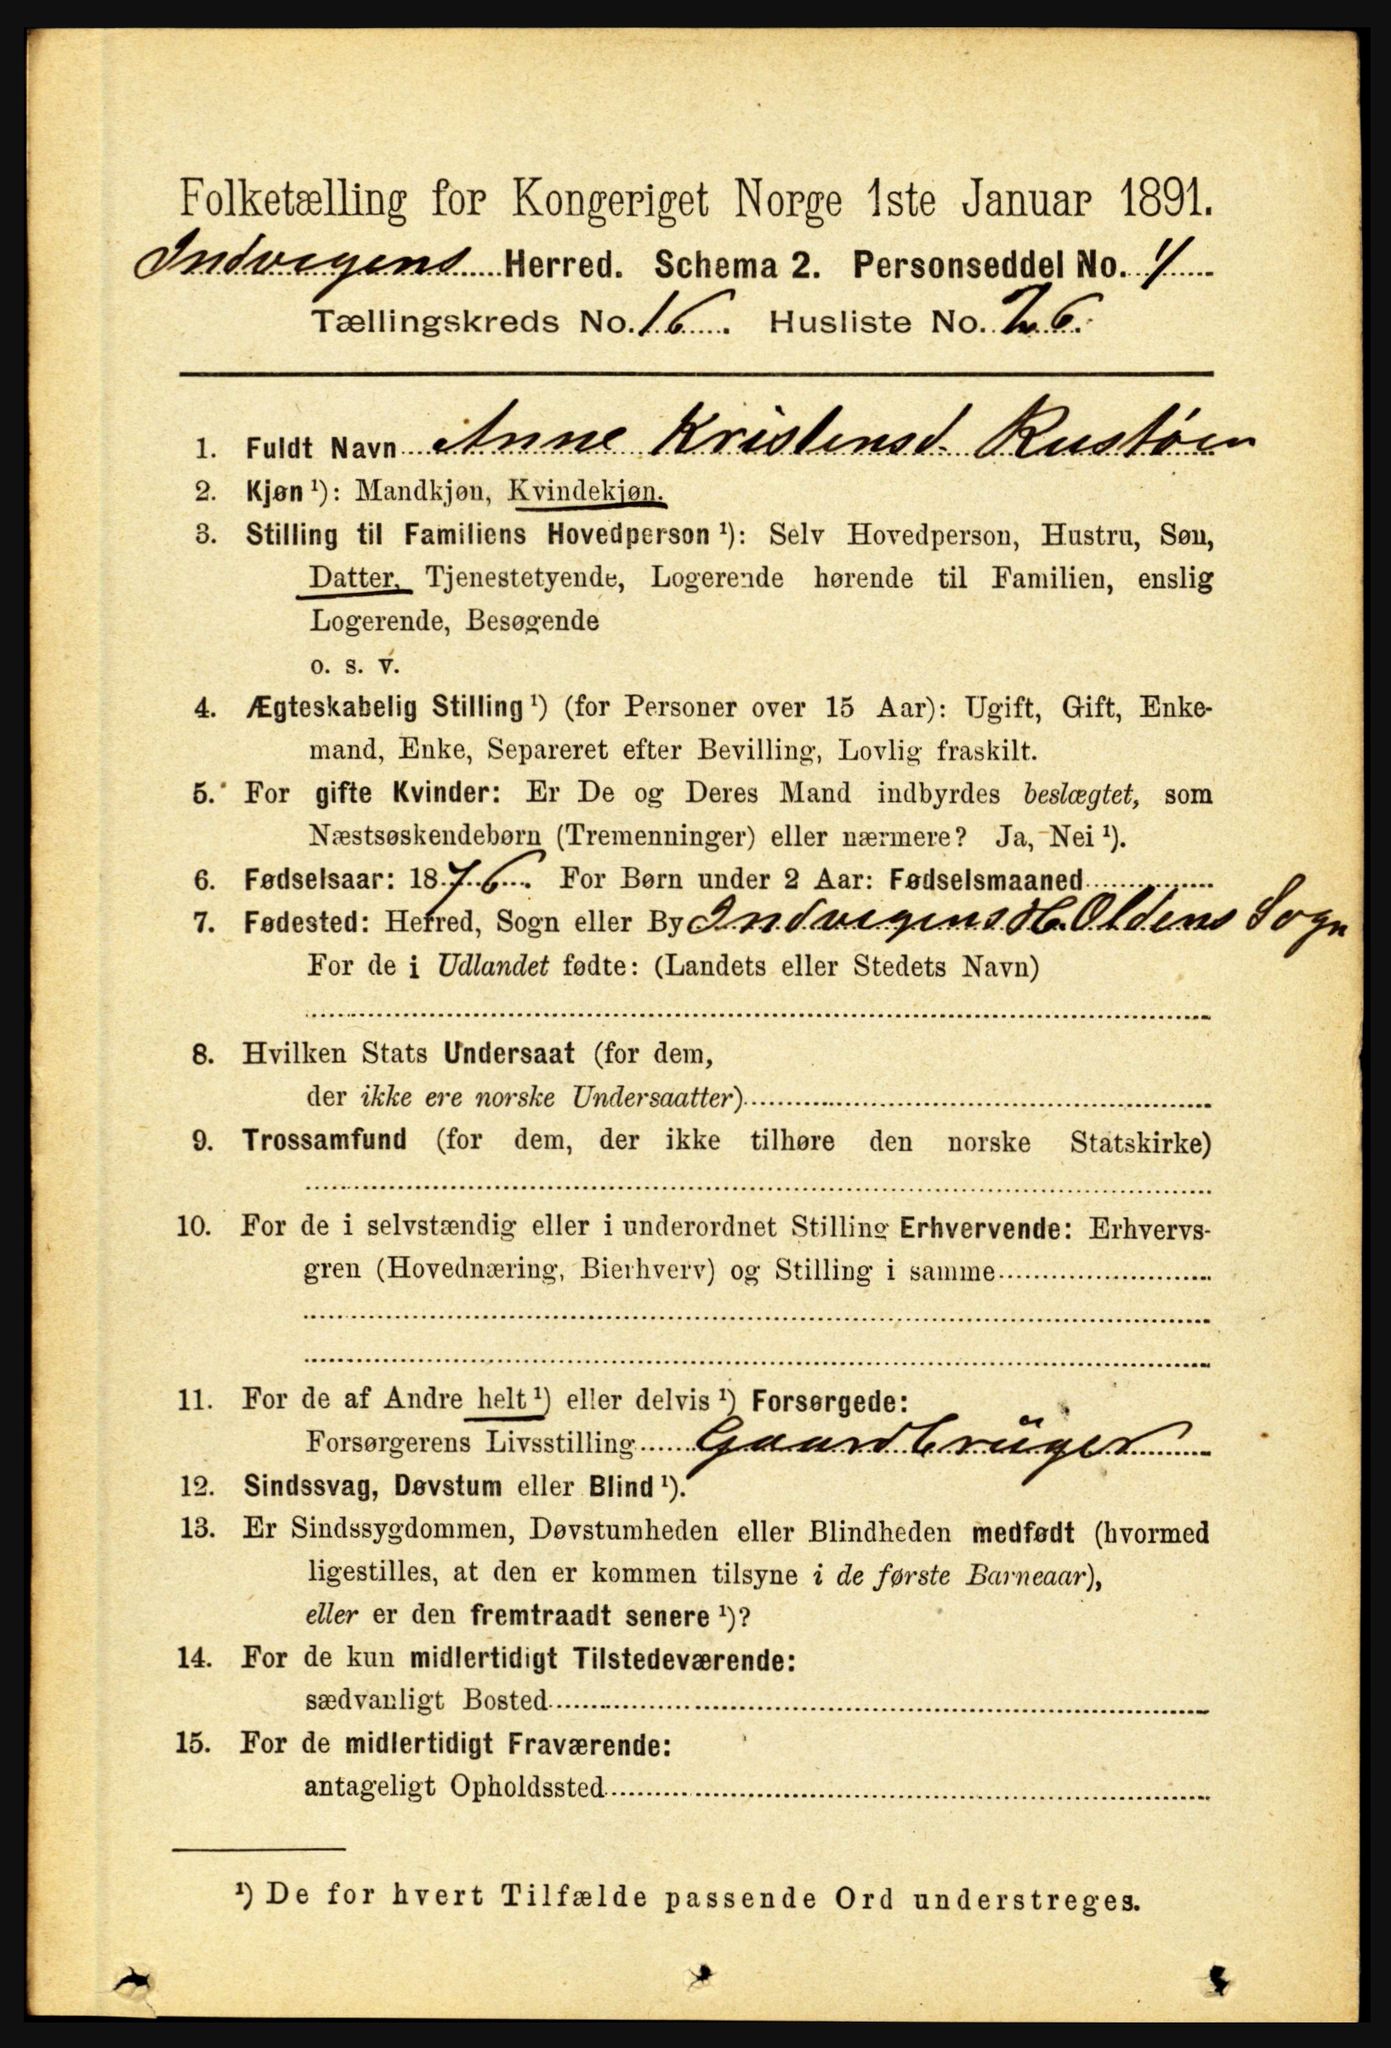 Folketælling for Kongeriget Norge 1ste Januar 1891.
Indvigens Herred. Schema 2. Personseddel No. 4
Tællingskreds No. 16. Husliste No. 26.
1. Fuldt Navn Anne Kristensd. Rustøen
2. Kjøn ¹): Mandkjøn, Kvindekjøn.
3. Stilling til Familiens Hovedperson ¹): Selv Hovedperson, Hustru, Søn,
Datter, Tjenestetyende, Logerende hørende til Familien, enslig
Logerende, Besøgende
o. s. v.
4. Ægteskabelig Stilling ¹) (for Personer over 15 Aar): Ugift, Gift, Enke-
mand, Enke, Separeret efter Bevilling, Lovlig fraskilt.
5. For gifte Kvinder: Er De og Deres Mand indbyrdes beslægtet, som
Næstsøskendebørn (Tremenninger) eller nærmere? Ja, Nei ¹).
6. Fødselsaar: 1876. For Børn under 2 Aar: Fødselsmaaned
7. Fødested: Herred, Sogn eller By Indvigens H. Oldens Sogn
For de i Udlandet fødte: (Landets eller Stedets Navn)
8. Hvilken Stats Undersaat (for dem,
der ikke ere norske Undersaatter)
9. Trossamfund (for dem, der ikke tilhøre den norske Statskirke)
10. For de i selvstændig eller i underordnet Stilling Erhvervende: Erhvervs-
gren (Hovednæring, Bierhverv) og Stilling i samme
11. For de af Andre helt ¹) eller delvis ¹) Forsørgede:
Forsørgerens Livsstilling Gaardbrüger
12. Sindssvag, Døvstum eller Blind ¹).
13. Er Sindssygdommen, Døvstumheden eller Blindheden medfødt (hvormed
ligestilles, at den er kommen tilsyne i de første Barneaar),
eller er den fremtraadt senere ¹)?
14. For de kun midlertidigt Tilstedeværende:
sædvanligt Bosted
15. For de midlertidigt Fraværende:
antageligt Opholdssted
¹) De for hvert Tilfælde passende Ord understreges.